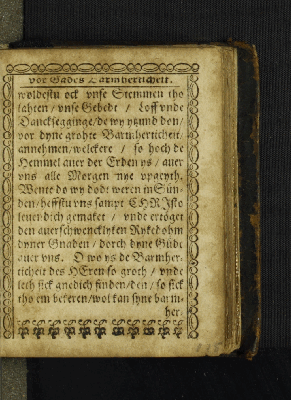 vor Gades Barmherticheit.
woldestu ock vnse Stemmen tho
laten / vnse Gebedt / Loff vnde
Dancksegginge / de wy ytzund don /
vor dyne grohte Barmherticheit /
annehmen / welckere / so hoch de
Hemmel auer der Erden ys / auer
vns alle Morgen nye vpgeyth.
Wente do wy dodt weren in Sün-
den / heffstu vns sampt CHRJsto
leuendich gemaket / vnde ertöget
den auerschwencklyken Rykedohm
dyner Gnaden / dorch dyne Güde
auer vns. O wo ys de Barmher-
ticheit des HEren so groth / vnde
leth sick gnedich finden / den / so sick
tho em bekeren / wol kan syne barm-
her-